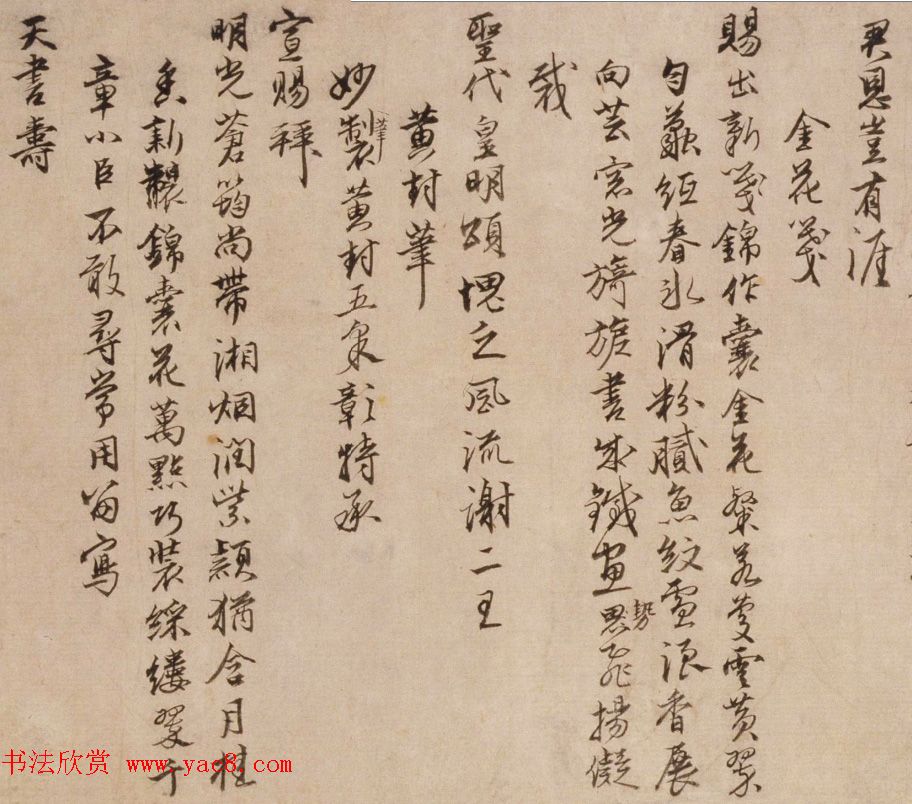 君恩豈有涯
金花箋
賜出新箋錦作囊金花粲若蔓雲黃翠
勻蠶紙春冰滑粉膩魚紋雪浪香展
向芸窓光旖旎書成鐵畫勢思飛揚儗
裁
聖代皇明頌愧乏風流謝二王
黃封筆
妙製筆黃封五采彰特承
宣賜拜
明光蒼筠尚帶湘烟潤紫穎猶含月桂
香新韔錦囊花萬點巧裝綵縷翠千
章小臣不敢尋常用留寫
天書壽
书法欣赏 www.yac8.com